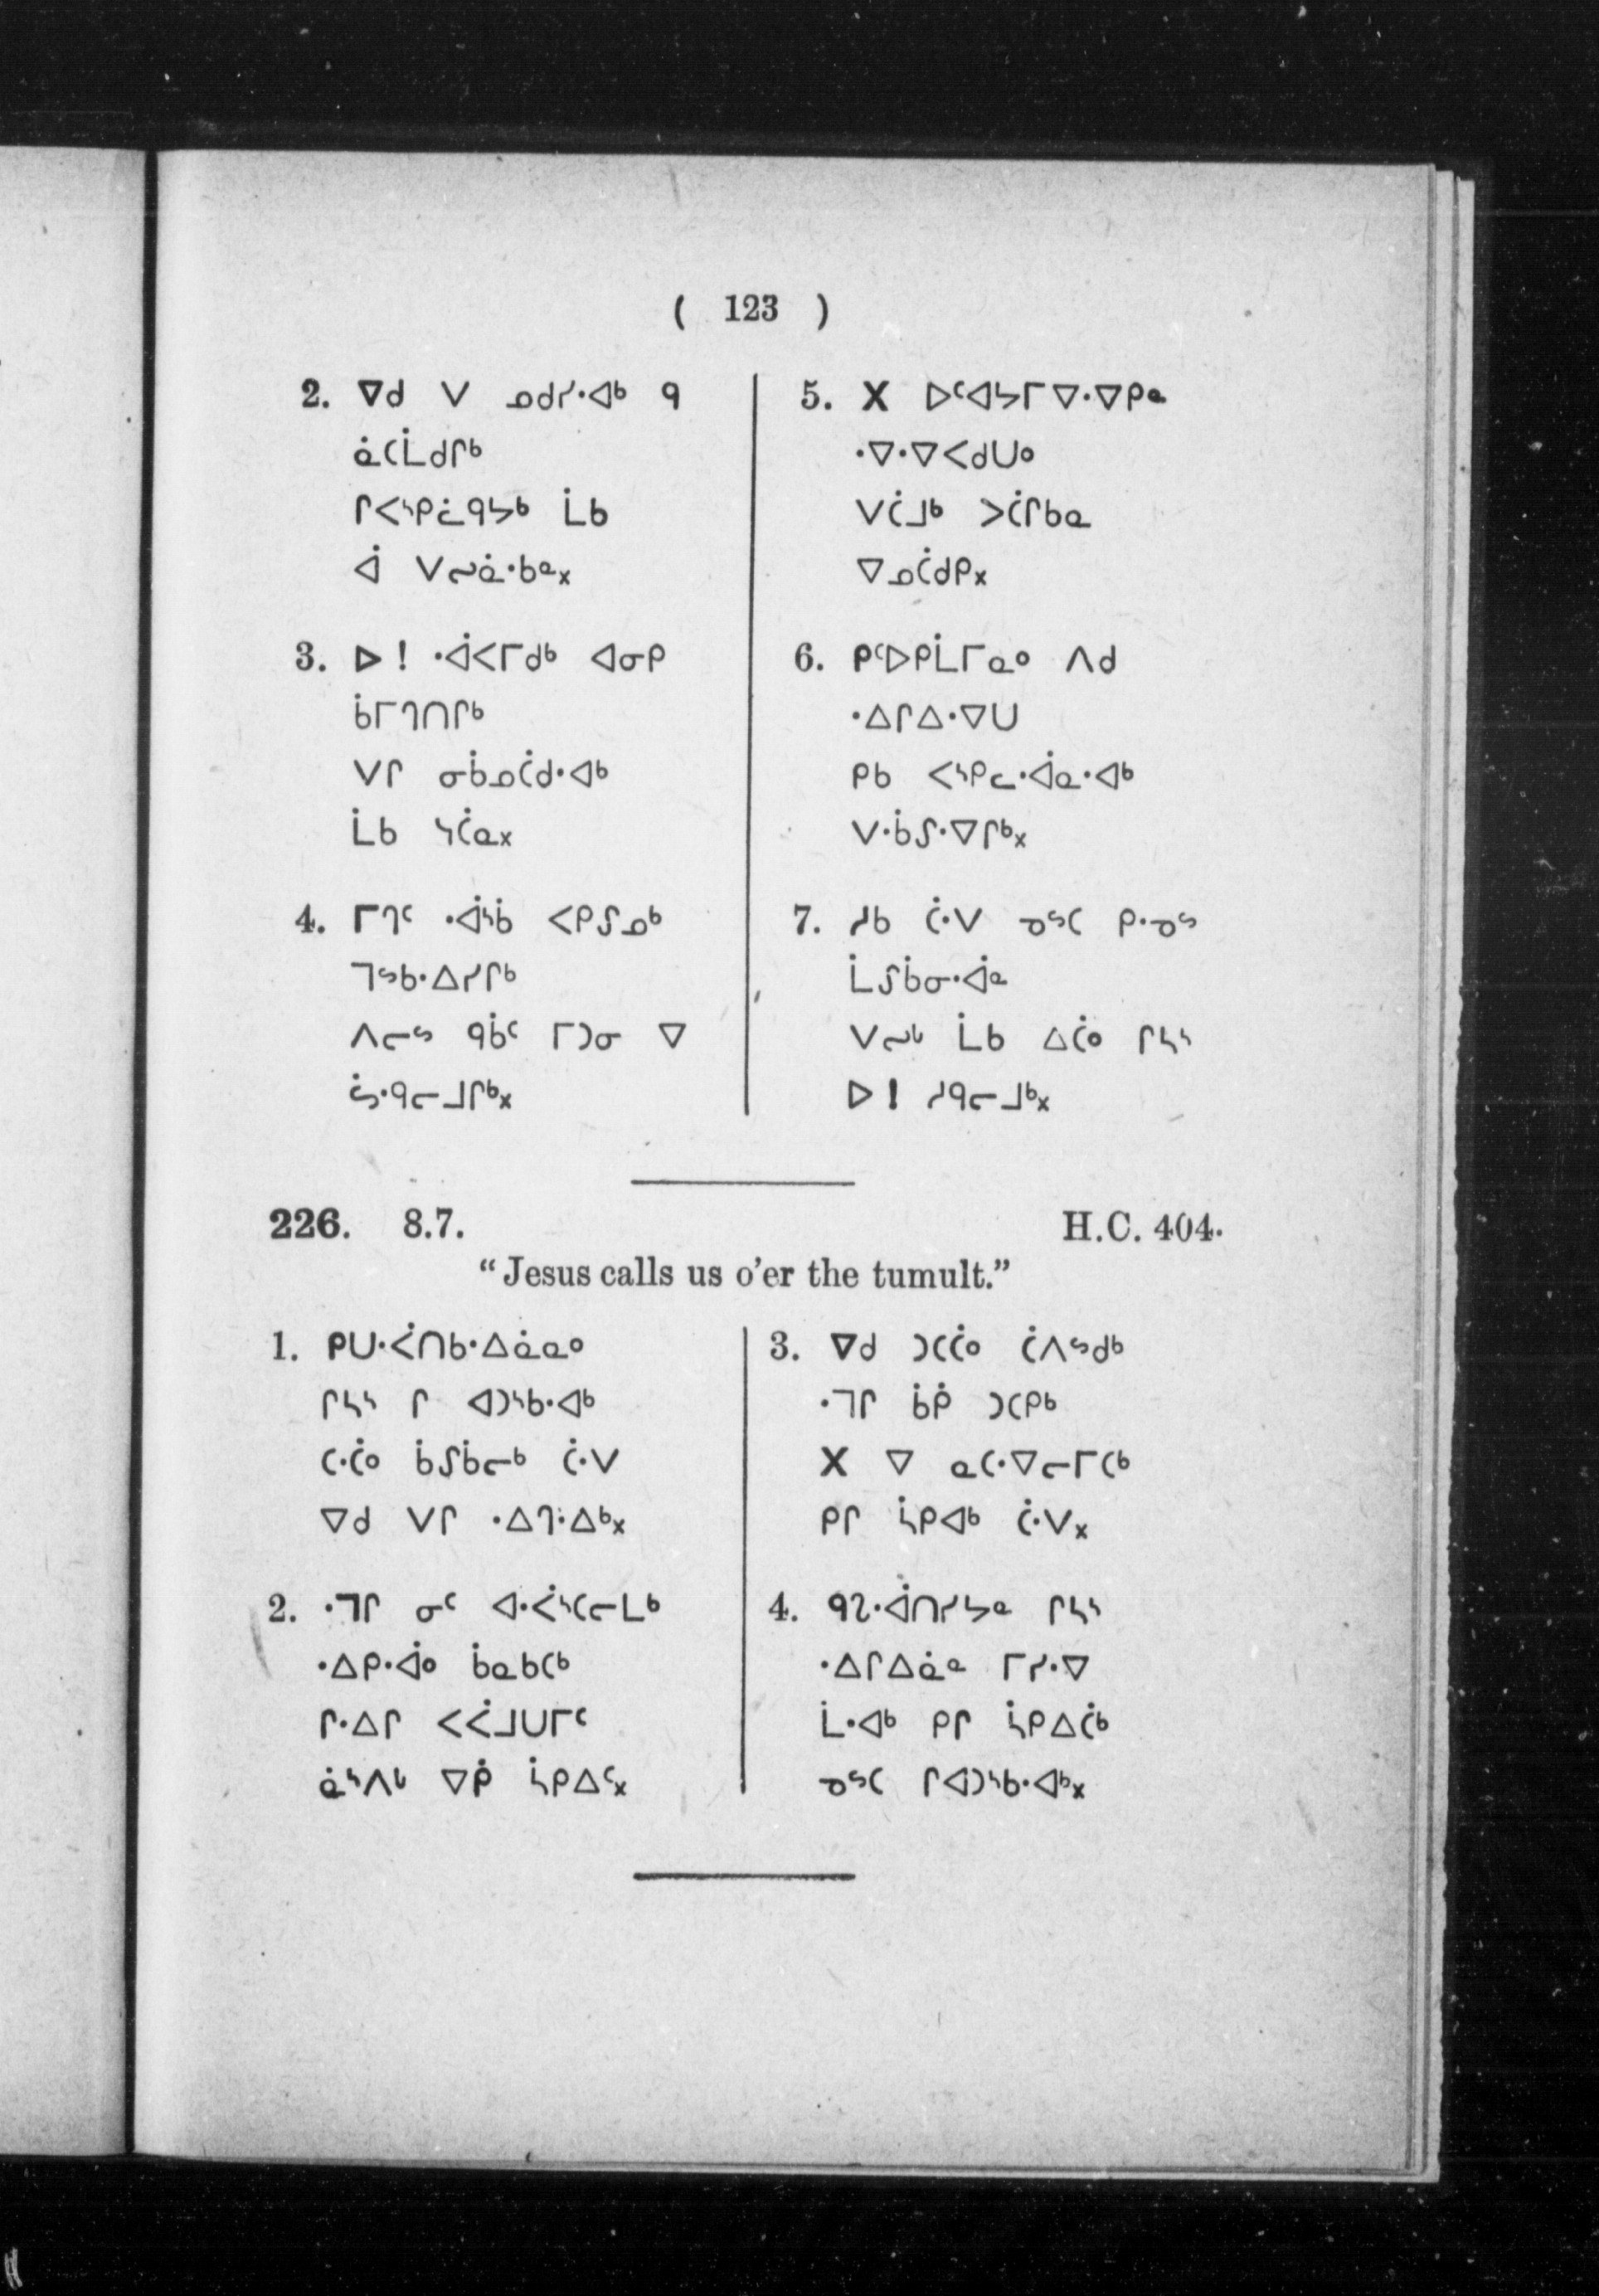 ( 123 )
2. ᐁᑯ ᐯ ᓄᑯᓯᐧᐊᒃ ᑫ
ᓈᑕᒫᑯᒋᒃ
ᒋᐸᔅᑭᓛᑫᔭᒃ ᒫᑲ
ᐋ ᐯᓕᓈᐧᑲᓐ᙮
3. ᐅ ! ᐧᐋᐸᒥᑯᒃ ᐊᓂᑭ
ᑳᒥᒉᑎᒋᒃ
ᐯᒋ ᓂᑳᓄᑖᑯᐧᐊᒃ
ᒫᑲ ᓴᑖᓇ᙮
4. ᒥᒉᑦ ᐧᐋᔅᑳ ᐸᑭᔑᓄᒃ
ᒣᔥᑲᐧᐃᓯᒋᒃ
ᐱᓕᔥ ᑫᑳᑦ ᒥᑐᓂ ᐁ
ᔖᐧᑫᓕᒧᒋᒃ᙮
5. ᐊ ᐅᑦᐊᔭᒥᐁᐧᐁᑭᓐ
ᐧᐁᐧᐁᐸᑯᑌᐤ
ᐯᑖᒧᒃ ᐳᑖᒋᑲᓇ
ᐁᓄᑖᑯᑭ᙮
6. ᑭᑦᐅᑭᒫᒥᓇᐤ ᐱᑯ
ᐧᐃᒋᐃᐧᐁᑌ
ᑭᑲ ᐸᔅᑭᓚᐧᐋᓇᐧᐊᒃ
ᐯᐧᑳᔑᐧᐁᒋᒃ᙮
7. ᓱᑲ ᑖᐧᐯ ᓀᔥᑕ ᑭᐧᓀᔥ
ᒫᔑᑳᓂᐧᐋᓐ
ᐯᓕᒡ ᒫᑲ ᐃᑖᐤ ᒋᓴᔅ
ᐅ ! ᓱᑫᓕᒧᒃ᙮
226. 8.7. H.C. 404.
“Jesus calls us o’er the tumult.”
1. ᑭᑌᐧᐹᑎᑲᐧᐃᓈᓇᐤ
ᒋᓴᔅ ᒋ ᐊᑐᔅᑲᐧᐊᒃ
ᑕᐧᑖᐤ ᑳᔑᑳᓕᒃ ᑖᐧᐯ
ᐁᑯ ᐯᒋ ᐧᐃᒉᐧᐃᒃ᙮
2. ᐧᒣᒋ ᓂᑦ ᐊᐧᐹᔅᑕᓕᒪᒃ
ᐧᐃᑭᐧᐋᐤ ᑳᓇᑲᑕᒃ
ᒋᐧᐃᒋ ᐸᐹᒧᑌᒥᑦ
ᓈᔅᐱᒡ ᐁᑮ ᓵᑭᐃᑦ᙮
3. ᐁᑯ ᑐᑕᑖᐤ ᑖᐱᔥᑯᒃ
ᐧᒣᒋ ᑳᑮ ᑐᑕᑭᒃ
ᐊ ᐁ ᓇᑕᐧᐁᓕᒥᑕᒃ
ᑭᒋ ᓵᑭᐊᒃ ᑖᐧᐯ᙮
4. ᑫᒋᐧᐋᑎᓯᔭᓐ ᒋᓴᔅ
ᐧᐃᒋᐃᓈᓐ ᒥᓯᐧᐁ
ᒫᐧᐊᒃ ᑭᒋ ᓵᑭᐃᑖᒃ
ᓀᔥᑕ ᒋᐊᑐᔅᑲᐧᐊᒃ᙮